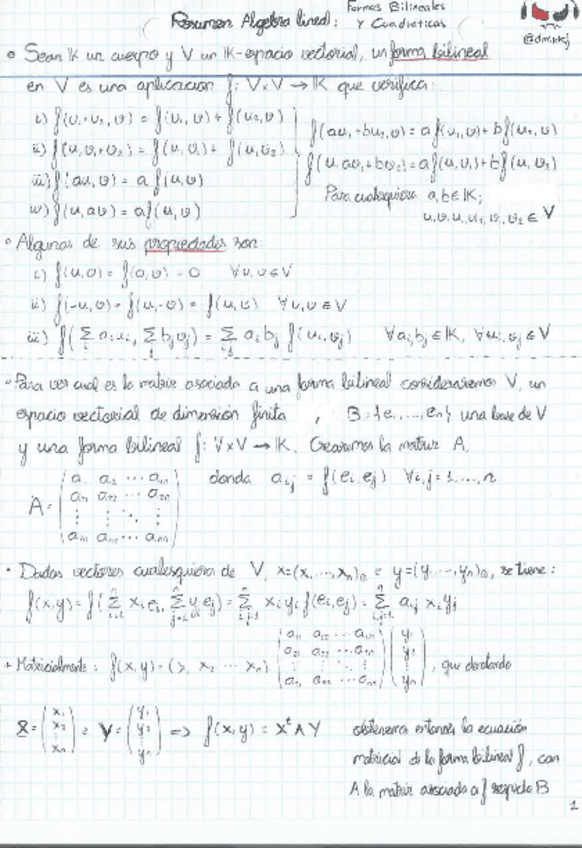 Resumen Algebra lineal: Formas Bilineales
y Cuadraticas
• Sean K un cuerpo y V un K-espacio vectorial, un forma bilineal
en V es una aplicacion f: V×V → K que verifica:
i) f(u₁+u₂, v) = f(u₁, v) + f(u₂, v)
ii) f(u, v₁+v₂) = f(u, v₁) + f(u, v₂)
iii) f(au, v) = a f(u, v)
iv) f(u, av) = a f(u, v)
f(au₁+bu₂, v) = a f(u₁, v) + b f(u₂, v)
f(u, av₁+bv₂) = a f(u, v₁) + b f(u, v₂)
Para cualesquiera a, b ∈ K;
u, v, u₁, u₂, v₁, v₂ ∈ V
• Algunas de sus propiedades son:
i) f(u, 0) = f(0, v) = 0 ∀u, v ∈ V
ii) f(-u, v) = f(u, -v) = f(u, v) ∀u, v ∈ V
iii) f(∑ aᵢuᵢ, ∑ bⱼvⱼ) = ∑ aᵢbⱼ f(uᵢ, vⱼ) ∀aᵢ, bⱼ ∈ K, ∀uᵢ, vⱼ ∈ V
• Para ver cual es la matriz asociada a una forma bilineal consideraremos V, un
espacio vectorial de dimensión finita , B = {e, ..., eₙ} una base de V
y una forma bilineal f: V×V → K. Crearemos la matriz A,
A = (a a₁₂ ... a₁ₙ donde aᵢⱼ = f(eᵢ, eⱼ) ∀i, j = 1, ..., n
a₂₁ a₂₂ ... a₂ₙ
⋮ ⋮ ⋱ ⋮
aₙ₁ aₙ₂ ... aₙₙ)
• Dados vectores cualesquiera de V, x = (x, ..., xₙ)_B e y = (y, ..., yₙ)_B, se tiene:
f(x, y) = f(∑ xᵢeᵢ, ∑ yⱼeⱼ) = ∑ xᵢyⱼ f(eᵢ, eⱼ) = ∑ aᵢⱼ xᵢyⱼ
+ Matricialmente: f(x, y) = (x₁ x₂ ... xₙ) (a₁₁ a₁₂ ... a₁ₙ) (y₁) , que denotando
(a₂₁ a₂₂ ... a₂ₙ) (y₂)
(⋮ ⋮ ⋱ ⋮) (⋮)
(aₙ₁ aₙ₂ ... aₙₙ) (yₙ)
X = (x₁ x₂ ⋮ xₙ) e Y = (y₁ y₂ ⋮ yₙ) => f(x, y) = XᵗAY obtenemos entonces la ecuación
matricial de la forma bilineal f, con
A la matriz asociada a f respecto B
1